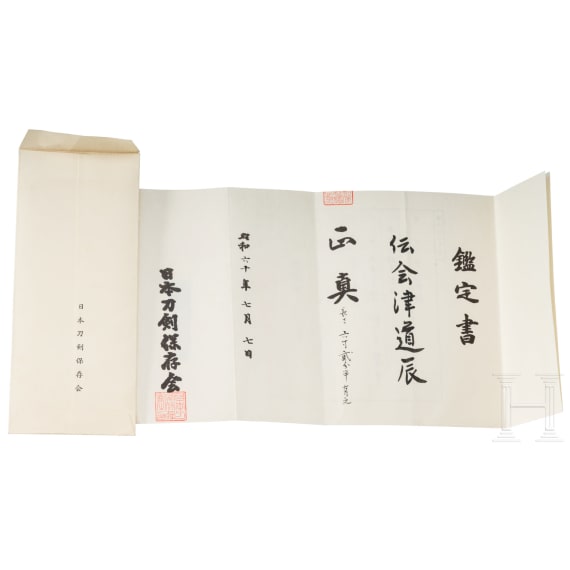 鑑定書
伝会津道辰
正真
長さ 六寸貳分半
昭和六十年七月七日
日本刀剣保存会
日本刀剣保存会
H